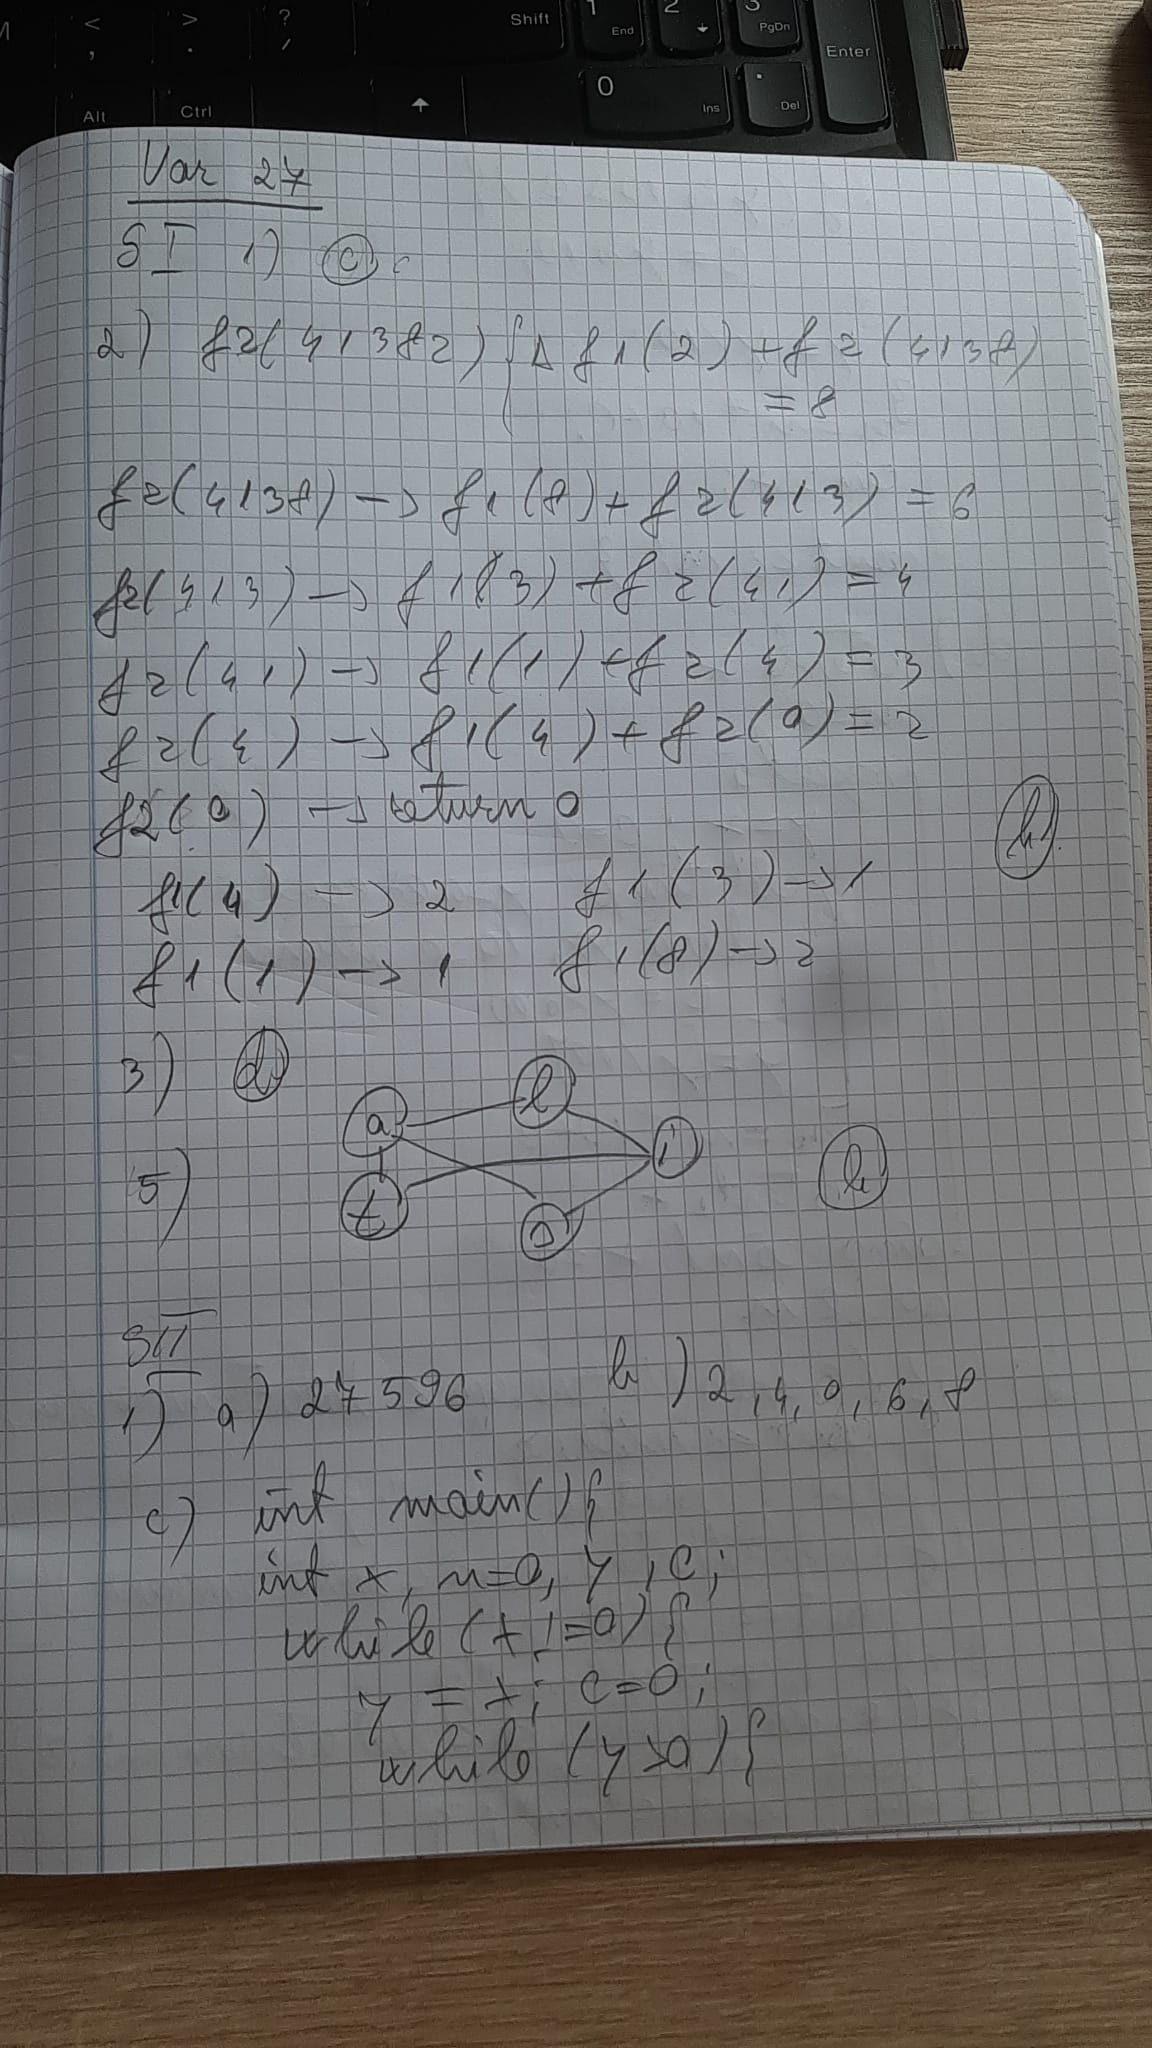 M < , > . ? / Shift 1 End 2 3 PgDn Enter
Alt Ctrl 0 Ins . Del
Var 27
S I 1) c
2) f2(41382) f1(2) + f2(4138)
= 8
f2(4138) -> f1(8) + f2(413) = 6
f2(413) -> f1(3) + f2(41) = 4
f2(41) -> f1(1) + f2(4) = 3
f2(4) -> f1(4) + f2(0) = 2
f2(0) -> return 0
b
f1(4) -> 2 f1(3) -> 1
f1(1) -> 1 f1(8) -> 2
3) d
a l i
5) t o b
SII
1) a) 27596 b) 2, 4, 0, 6, 8
c) int main(){
int x, n=0, y, c;
while (x!=0){
y = x; c=0;
while (y>0){